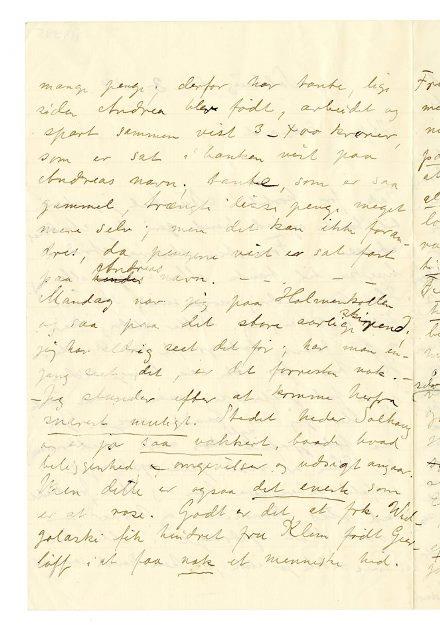 mange penge; derfor har tante, lige
siden Andrea blev født, arbeidet og
spart sammen vist 3-400 kroner,
som er sat i banken vist paa
Andreas navn. tante, som er saa
gammel, trængte disse penge meget
mere selv; men det kan ikke foran-
dres, da pengene vist er sat fast
paa Andreas navn. — — — —
Mandag var jeg paa Holmenkollen
og saa paa det store aarlige skirend;
jeg har aldrig seet det før; har man en-
gang seet det, er det forresten nok. —
Jeg stunder efter at komme herfra
snarest muligt. Stedet heder Solhaug
og er jo saa vakkert, baade hvad
beliggenhed omgivelser og udsigt angaar.
Men dette er ogsaa det eneste som
er at rose. Godt er det at frk.
fik hindret fru Klem født
i at faa nok et menneske hid.